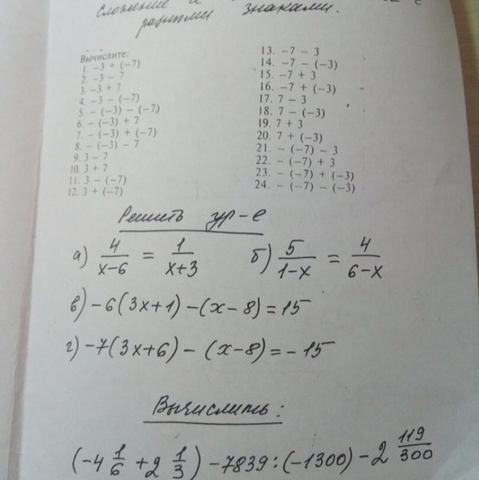 сложение и с
разными знаками.
Вычислите:
1. −3 + (−7)
2. −3 − 7
3. −3 + 7
4. −3 − (−7)
5. − (−3) − (−7)
6. − (−3) + 7
7. − (−3) + (−7)
8. − (−3) − 7
9. 3 − 7
10. 3 + 7
11. 3 − (−7)
12. 3 + (−7)
13. −7 − 3
14. −7 − (−3)
15. −7 + 3
16. −7 + (−3)
17. 7 − 3
18. 7 − (−3)
19. 7 + 3
20. 7 + (−3)
21. − (−7) − 3
22. − (−7) + 3
23. − (−7) + (−3)
24. − (−7) − (−3)
Решить ур-е
а) 4/(x−6) = 1/(x+3) б) 5/(1−x) = 4/(6−x)
в) −6(3x+1) −(x−8) = 15
г) −7(3x+6) − (x−8) = −15
Вычислить:
(−4 1/6 + 2 1/3) − 7839 : (−1300) − 2 119/300